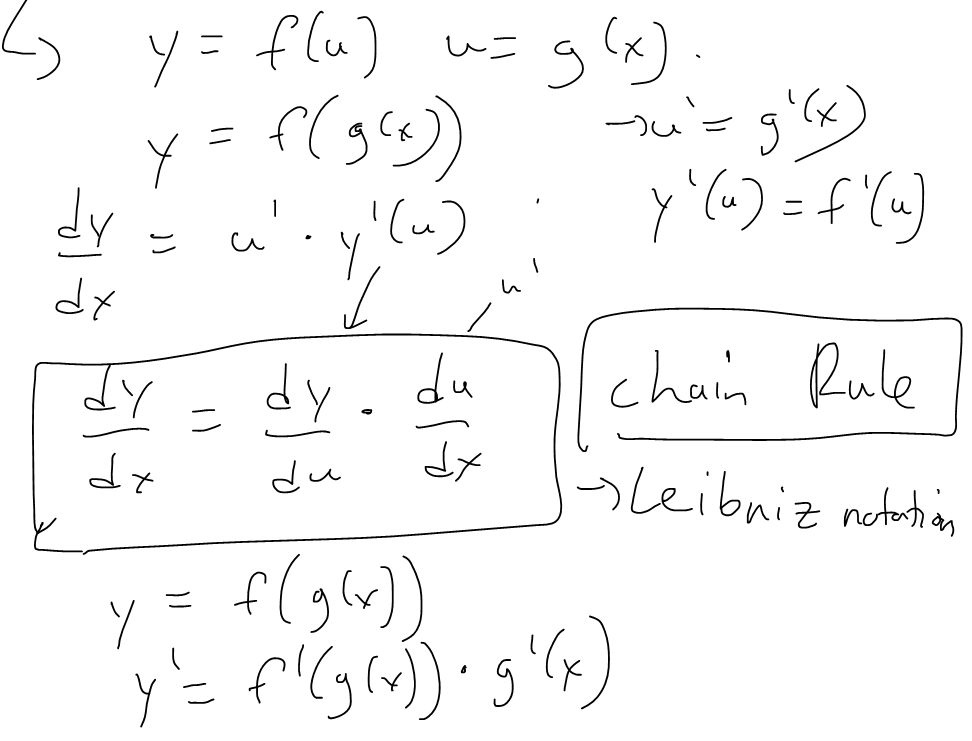 ↳ y = f(u) u = g(x).
y = f(g(x)) → u' = g'(x)
y'(u) = f'(u)
dy/dx = u' · y'(u)
u'
dy/dx = dy/du · du/dx
chain Rule
→ Leibniz notation
y = f(g(x))
y' = f'(g(x)) · g'(x)